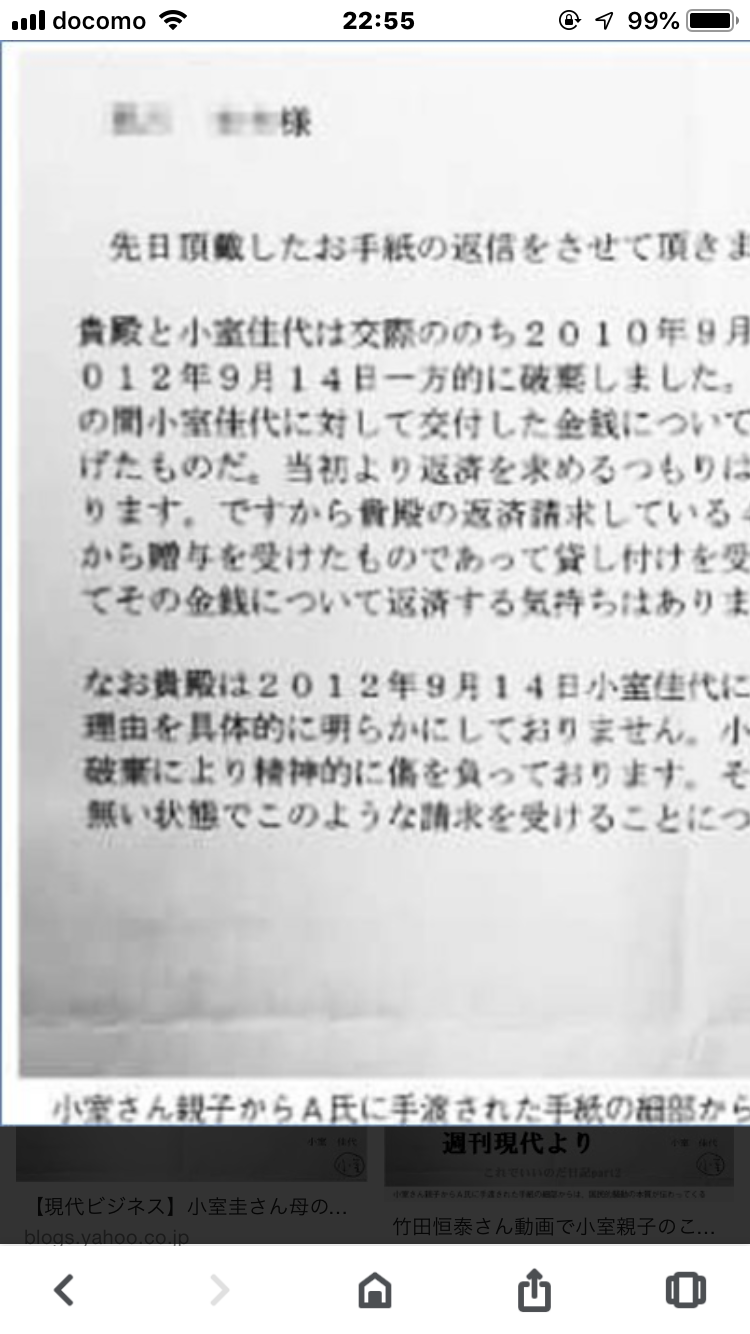 docomo 22:55 99%
様
先日頂戴したお手紙の返信をさせて頂きま
貴殿と小室佳代は交際ののち２０１０年９月
０１２年９月１４日一方的に破棄しました。
の間小室佳代に対して交付した金銭について
げたものだ。当初より返済を求めるつもりは
ります。ですから貴殿の返済請求している
から贈与を受けたものであって貸し付けを受
てその金銭について返済する気持ちはありま
なお貴殿は２０１２年９月１４日小室佳代に
理由を具体的に明らかにしておりません。小
破棄により精神的に傷を負っております。そ
無い状態でこのような請求を受けることにつ
小室さん親子からＡ氏に手渡された手紙の細部から
小室 佳代
週刊現代より
小室 佳代
これでいいのだ日記part2
小室さん親子からA氏に手渡された手紙の細部からは、
【現代ビジネス】小室圭さん母の...
竹田恒泰さん動画で小室親子のこ...
blogs.yahoo.co.jp